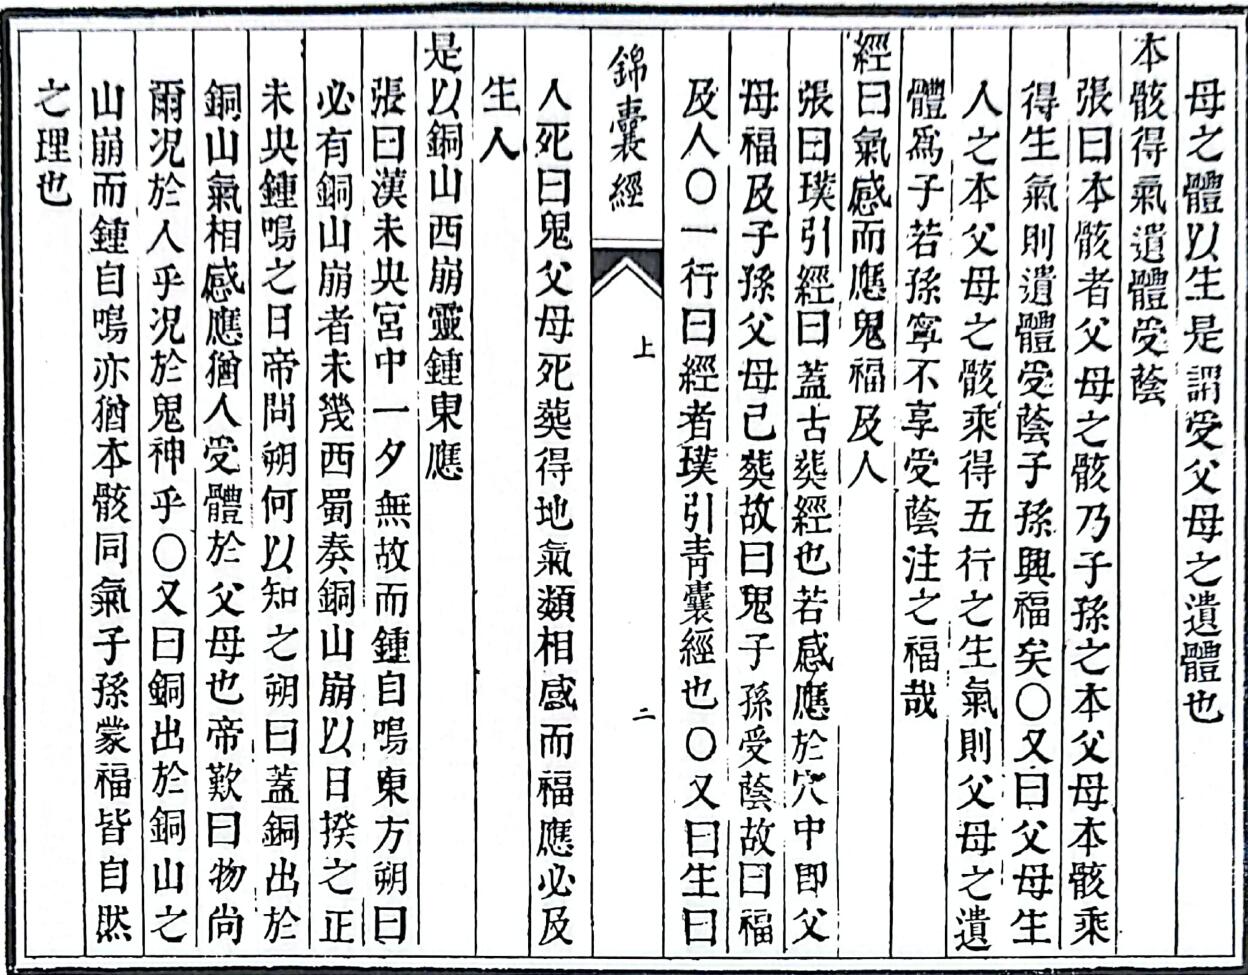 母之體以生是謂受父母之遺體也
本骸得氣遺體受蔭
張曰本骸者父母之骸乃子孫之本父母本骸乘
得生氣則遺體受蔭子孫興福矣〇又曰父母生
人之本父母之骸乘得五行之生氣則父母之遺
體爲子若孫寧不享受蔭注之福哉
經曰氣感而應鬼福及人
張曰璞引經曰蓋古葬經也若感應於穴中即父
母福及子孫父母己葬故曰鬼子孫受蔭故曰福
及人〇一行曰經者璞引青囊經也〇又曰生曰
錦囊經
上
二
人死曰鬼父母死葬得地氣類相感而福應必及
生人
是以銅山西崩靈鍾東應
張曰漢未央宮中一夕無故而鍾自鳴東方朔曰
必有銅山崩者未幾西蜀奏銅山崩以日揆之正
未央鍾鳴之日帝問朔何以知之朔曰蓋銅出於
銅山氣相感應猶人受體於父母也帝歎曰物尚
爾况於人乎况於鬼神乎〇又曰銅出於銅山之
山崩而鍾自鳴亦猶本骸同氣子孫蒙福皆自然
之理也